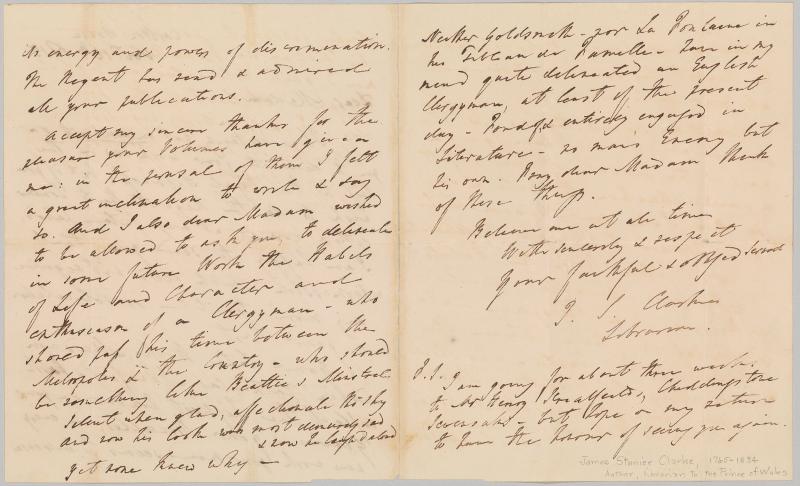 its energy and powers of discrimination.
The Regent has read & admired
all your publications.
Accept my sincere thanks for the
pleasure your Volumes have given
me: in the perusal of them I felt
a great inclination to write & say
so. And I also dear Madam wished
to be allowed to ask you, to delineate
in some future Work the Habits
of Life and Character and
enthusiasm of a Clergyman - who
should pass his time between the
Metropolis & the Country - who should
be something like Beattie's Minstrel
Silent when glad, affectionate tho' shy
and now his look was most demurely sad
& now he laugh'd aloud
yet none knew why -
Neither Goldsmith - nor La Fontaine in
his Tableau de Famille - have in my
mind quite delineated an English
Clergyman, at least of the present
day - Fond of, & entirely engaged in
Literature - no man's Enemy but
his own. Pray dear Madam think
of these things.
Believe me at all times
With sincerity & respect
Your faithful & obliged Servant
J. S. Clarke
Librarian.
P.S.
I am going for about three weeks
to Mr Henry Streatfeilds, Chiddingstone
Sevenoaks - but hope on my return
to have the honour of seeing you again.
James Stanier Clarke, 1765-1834
Author, librarian to the Prince of Wales